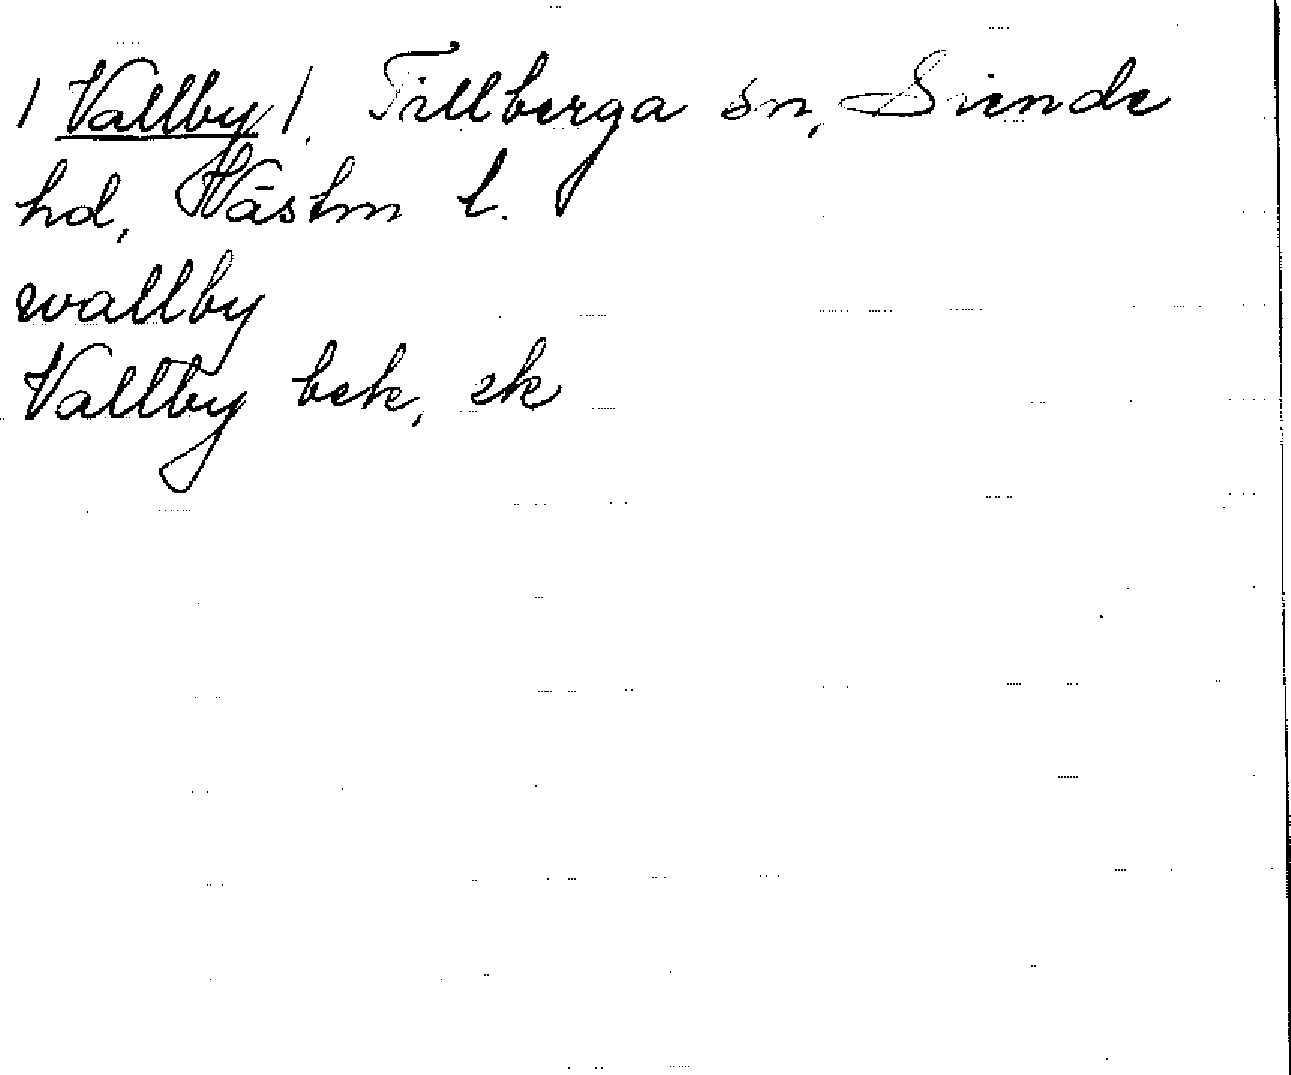 / Vallby /. Tillberga sn, Siende
hd, Västm l.
wallby
Vallby bek, ek